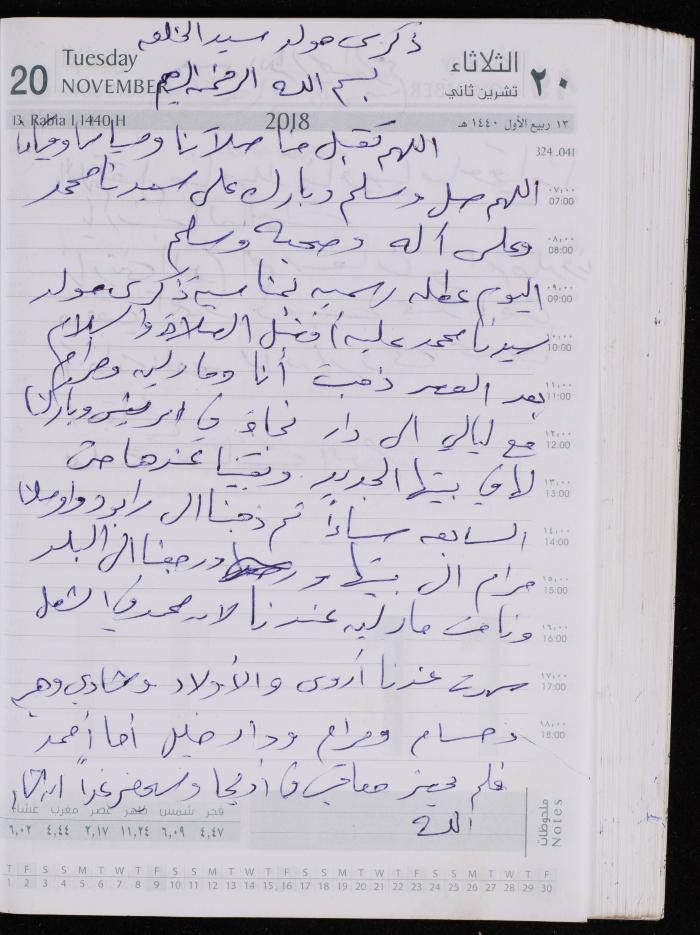 ذكرى مولد سيد الخلق
Tuesday الثلاثاء
20 NOVEMBER تشرين ثاني ٢٠
بسم الله الرحمن الرحيم
13 Rabia I 1440 H 2018 ١٣ ربيع الأول ١٤٤٠ هـ
اللهم تقبل منا صلاتنا وصيامنا وقيامنا
324 .041
٠٧,٠٠ 07:00
اللهم صل وسلم وبارك على سيدنا محمد
٠٨,٠٠ 08:00
وعلى آله وصحبه وسلم
٠٩,٠٠ 09:00
اليوم عطله رسميه بمناسبة ذكرى مولد
١٠,٠٠ 10:00
سيدنا محمد عليه أفضل الصلاة والسلام
١١,٠٠ 11:00
بعد العصر ذهبت أنا ومارلين ومرام
١٢,٠٠ 12:00
مع ليالي الى دار نجاة في وباركنا
١٣,٠٠ 13:00
لها في بيتها الجديد وبقينا عندها حتى
١٤,٠٠ 14:00
السابعه مساءً ثم ذهبنا الى واوصلنا
١٥,٠٠ 15:00
مرام الى بيتها ورجعنا الى البلد
١٦,٠٠ 16:00
ونامت مارلين عندنا لان محمد في الشغل
١٧,٠٠ 17:00
سهرت عندنا أروى والأولاد وشادي
١٨,٠٠ 18:00
وحسام ومرام ودار خليل أما أحمد
فلم يحضر في أريحا وسيحضر غداً ان شاء
الله
ملحوظات
Notes
فجر شمس ظهر عصر مغرب عشاء
٤,٤٧ ٦,٠٩ ١١,٢٤ ٢,١٧ ٤,٤٤ ٦,٠٢
T F S S M T W T F S S M T W T F S S M T W T F S S M T W T F
1 2 3 4 5 6 7 8 9 10 11 12 13 14 15 16 17 18 19 20 21 22 23 24 25 26 27 28 29 30